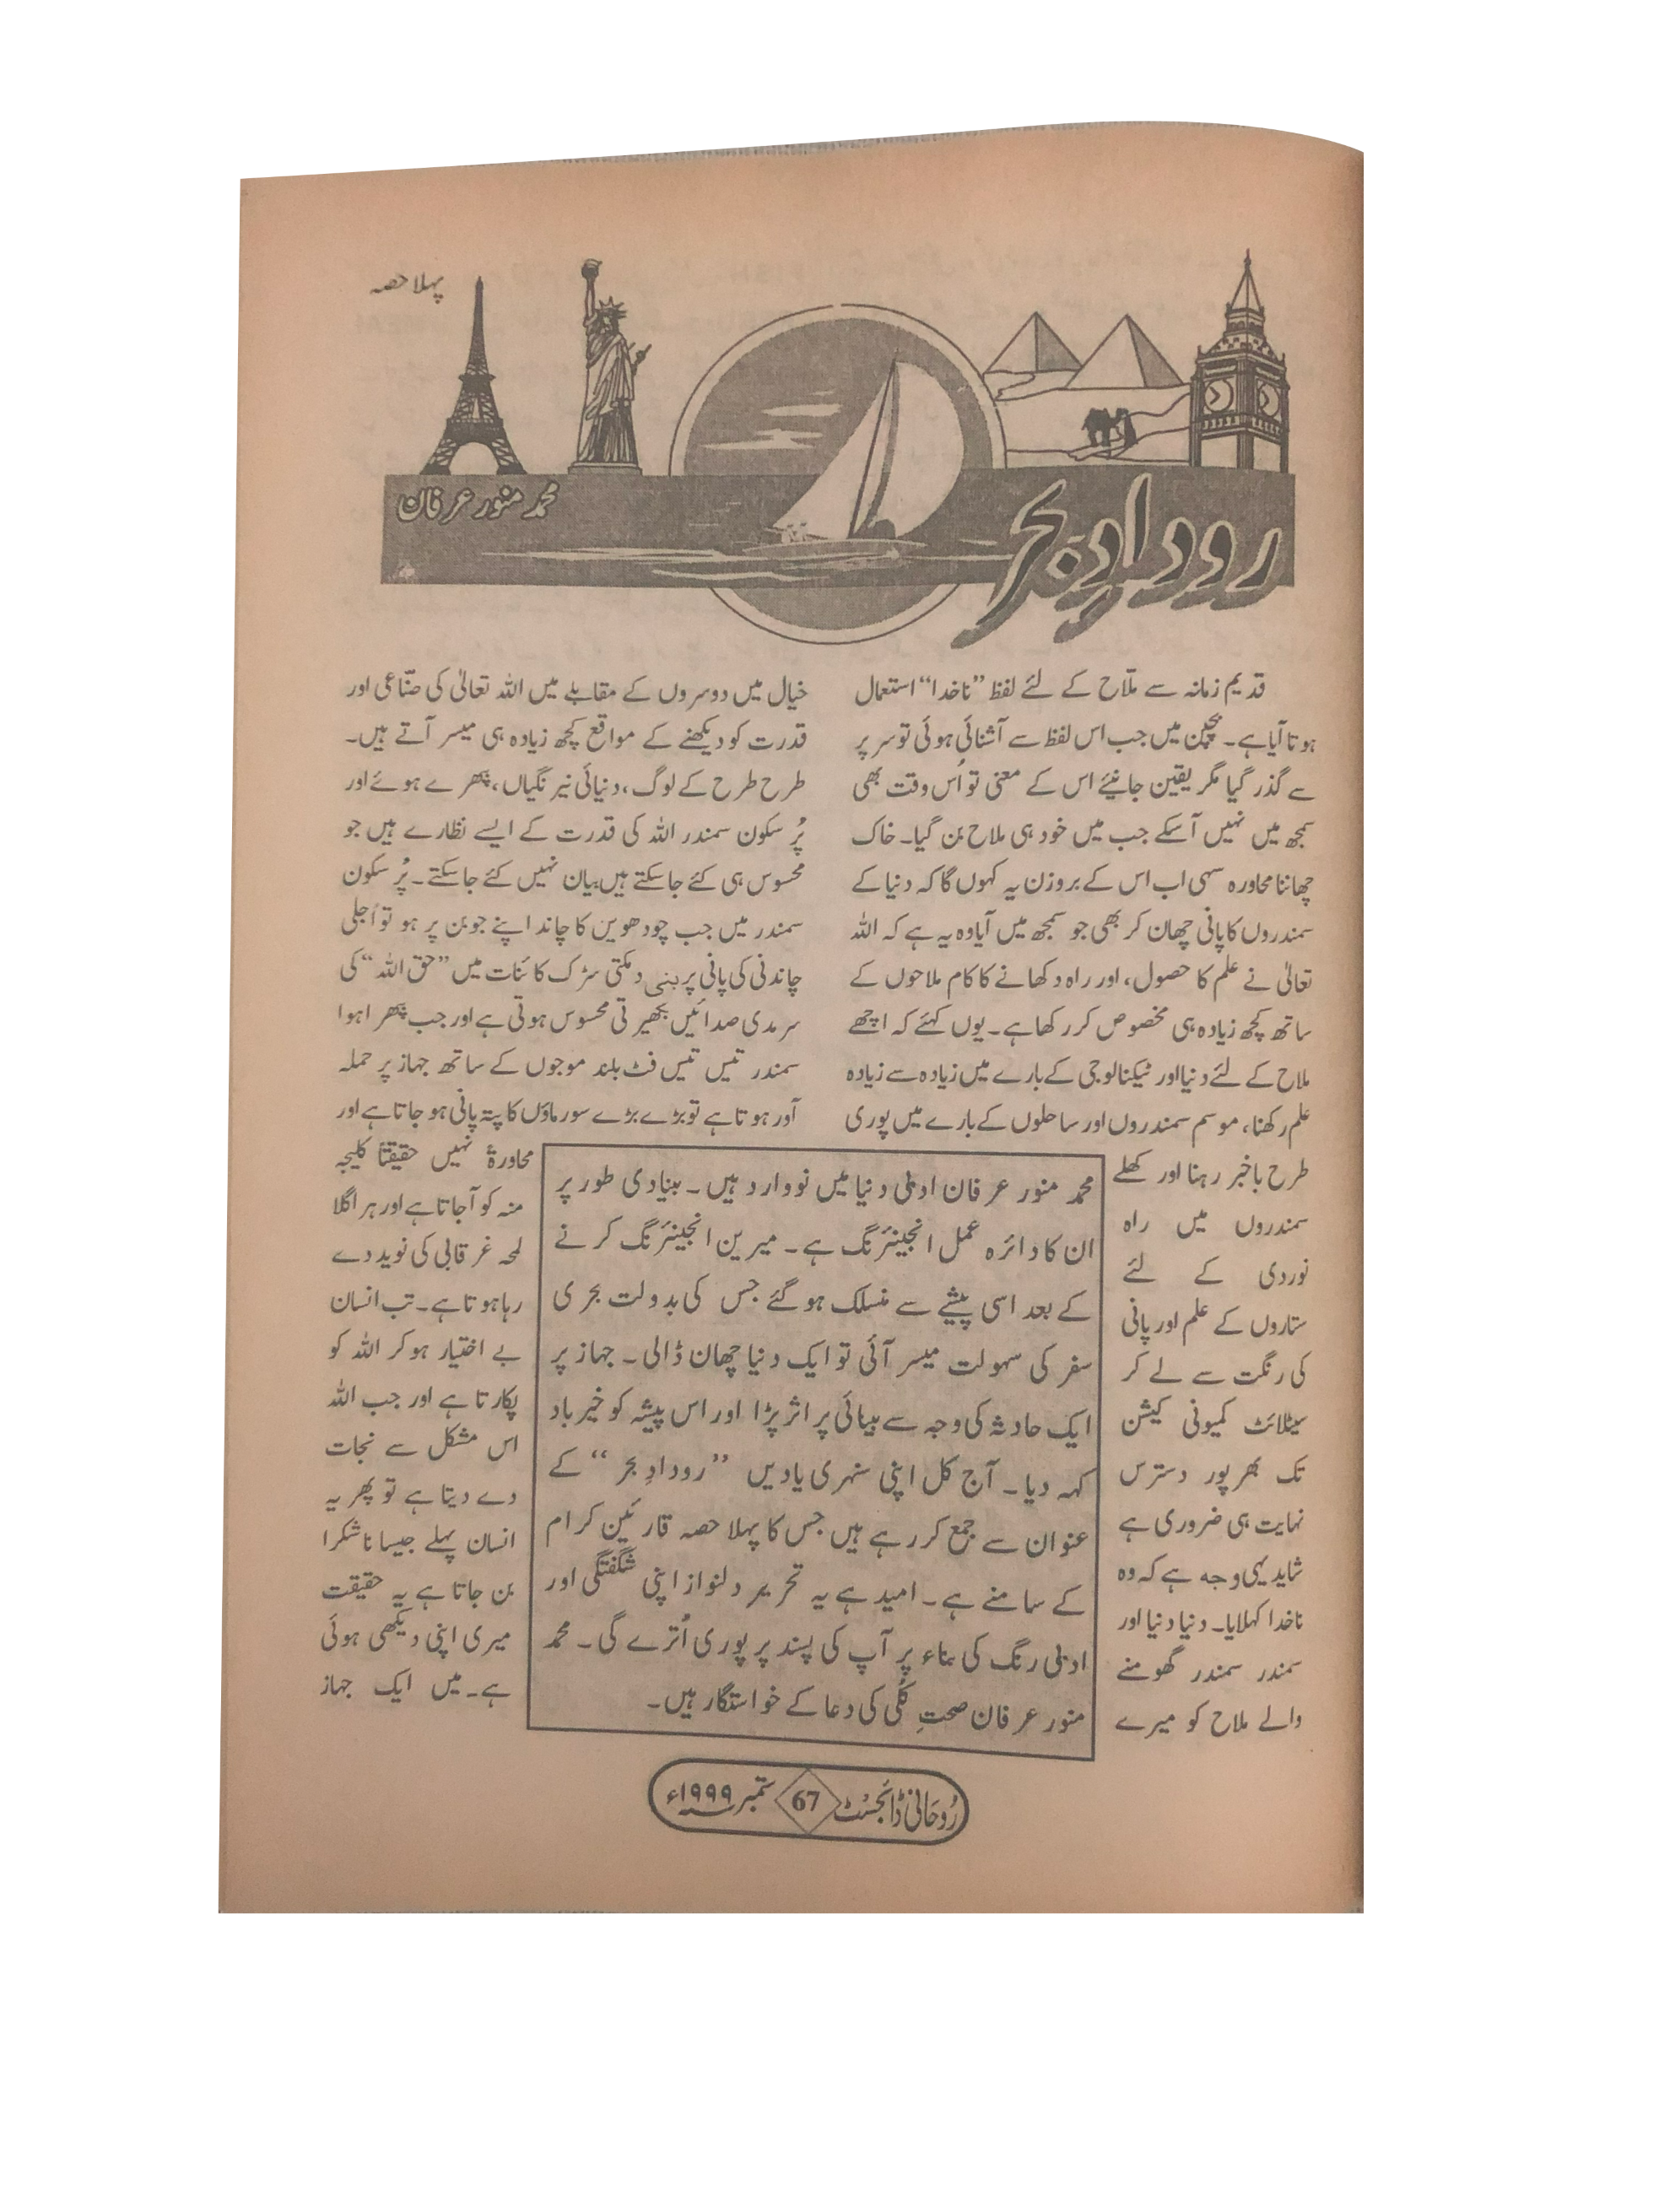 پہلا حصہ
رودادِ بحر
محمد منور عرفان
قدیم زمانہ سے ملّاح کے لئے لفظ ”ناخدا“ استعمال
ہوتا آیا ہے۔ بچپن میں جب اس لفظ سے آشنائی ہوئی تو سر پر
سے گذر گیا مگر یقین جانیئے اس کے معنی تو اُس وقت بھی
سمجھ میں نہیں آسکے جب میں خود ہی ملاح بن گیا۔ خاک
چھاننا محاورہ سہی اب اس کے بروزن یہ کہوں گا کہ دنیا کے
سمندروں کا پانی چھان کر بھی جو سمجھ میں آیا وہ یہ ہے کہ اللہ
تعالیٰ نے علم کا حصول، اور راہ دکھانے کا کام ملاحوں کے
ساتھ کچھ زیادہ ہی مخصوص کر رکھا ہے۔ یوں کہئے کہ اچھے
ملاح کے لئے دنیا اور ٹیکنالوجی کے بارے میں زیادہ سے زیادہ
علم رکھنا، موسم سمندروں اور ساحلوں کے بارے میں پوری
طرح باخبر رہنا اور کھلے
سمندروں میں راہ
نوردی کے لئے
ستاروں کے علم اور پانی
کی رنگت سے لے کر
سیٹلائٹ کمیونی کیشن
تک بھرپور دسترس
نہایت ہی ضروری ہے
شاید یہی وجہ ہے کہ وہ
ناخدا کہلایا۔ دنیا دنیا اور
سمندر سمندر گھومنے
والے ملاح کو میرے
خیال میں دوسروں کے مقابلے میں اللہ تعالیٰ کی صنّاعی اور
قدرت کو دیکھنے کے مواقع کچھ زیادہ ہی میسر آتے ہیں۔
طرح طرح کے لوگ، دنیائی نیرنگیاں، بپھرے ہوئے اور
پُر سکون سمندر اللہ کی قدرت کے ایسے نظارے ہیں جو
محسوس ہی کئے جاسکتے ہیں بیان نہیں کئے جاسکتے۔ پُر سکون
سمندر میں جب چودھویں کا چاند اپنے جوبن پر ہو تو اُجلی
چاندنی کی پانی پر بنی دمکتی سڑک کائنات میں ”حق اللہ“ کی
سرمدی صدائیں بکھیرتی محسوس ہوتی ہے اور جب بپھرا ہوا
سمندر تیس تیس فٹ بلند موجوں کے ساتھ جہاز پر حملہ
آور ہوتا ہے تو بڑے بڑے سورماؤں کا پتہ پانی ہو جاتا ہے اور
محاورۃً نہیں حقیقتاً کلیجہ
منہ کو آجاتا ہے اور ہر اگلا
لمحہ غرقابی کی نوید دے
رہا ہوتا ہے۔ تب انسان
بے اختیار ہو کر اللہ کو
پکارتا ہے اور جب اللہ
اس مشکل سے نجات
دے دیتا ہے تو پھر یہ
انسان پہلے جیسا ناشکرا
بن جاتا ہے یہ حقیقت
میری اپنی دیکھی ہوئی
ہے۔ میں ایک جہاز
محمد منور عرفان ادبی دنیا میں نووارد ہیں۔ بنیادی طور پر
ان کا دائرہ عمل انجینئرنگ ہے۔ میرین انجینئرنگ کرنے
کے بعد اسی پیشے سے منسلک ہوگئے جس کی بدولت بحری
سفر کی سہولت میسر آئی تو ایک دنیا چھان ڈالی۔ جہاز پر
ایک حادثہ کی وجہ سے بینائی پر اثر پڑا اور اس پیشہ کو خیر باد
کہہ دیا۔ آج کل اپنی سنہری یادیں ”رودادِ بحر“ کے
عنوان سے جمع کر رہے ہیں جس کا پہلا حصہ قارئین کرام
کے سامنے ہے۔ امید ہے یہ تحریر دلنواز اپنی شگفتگی اور
ادبی رنگ کی بناء پر آپ کی پسند پر پوری اُترے گی۔ محمد
منور عرفان صحتِ کُلّی کی دعا کے خواستگار ہیں۔
رُوحانی ڈائجسٹ 67 ستمبر ۱۹۹۹ء